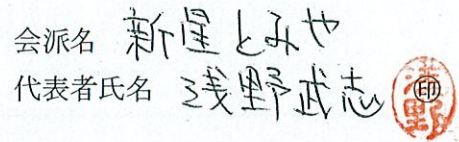 会派名 新星とみや
代表者氏名 浅野武志 ㊞
浅野